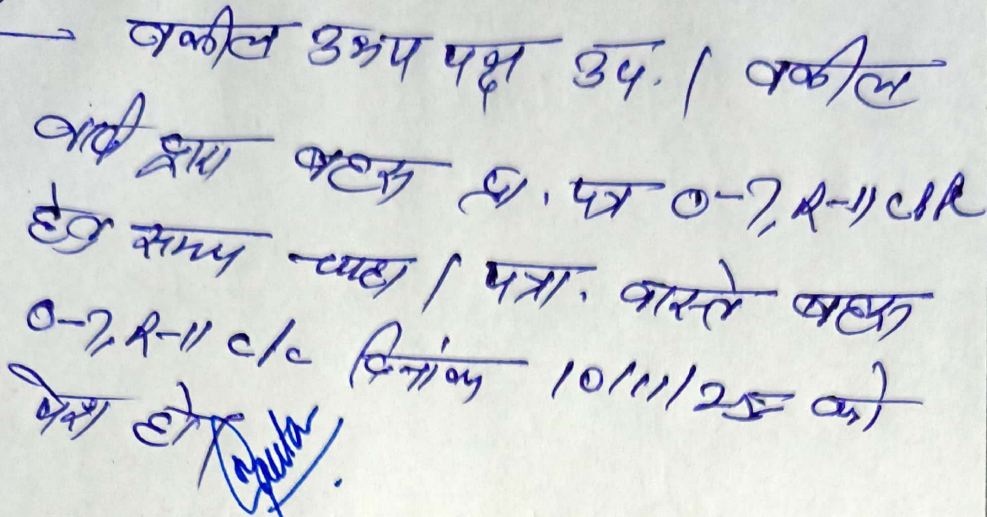 वकील उभय पक्ष उप. । वकील
वादी द्वारा बहस प्रा. पत्र 0-7, R-11 CPC
हेतु समय चाहा । पत्रा. वास्ते बहस
0-7, R-11 c/c दिनांक 10/11/25 को
पेश हो ।